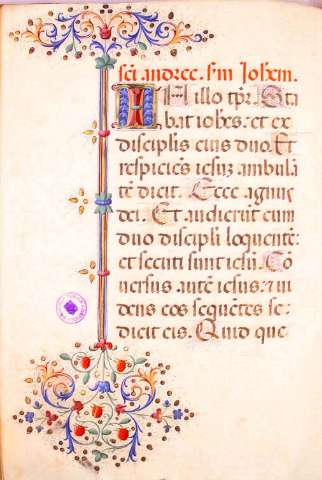 sc̄i andree. sm̄ Ioh̄em.
IN illo tp̄r. Sta
bat ioh̄es. et ex
discipl̄is eius duo. Et
respiciēs iesuȝ ambulā
tē dicit. Ecce agnus
dei. Et audierūt eum
duo discipl̄i loquentē:
et secuti sunt iesū. Cō
versus autē iesus: ⁊ vi
dens eos sequētes se:
dicit eis. Quid que